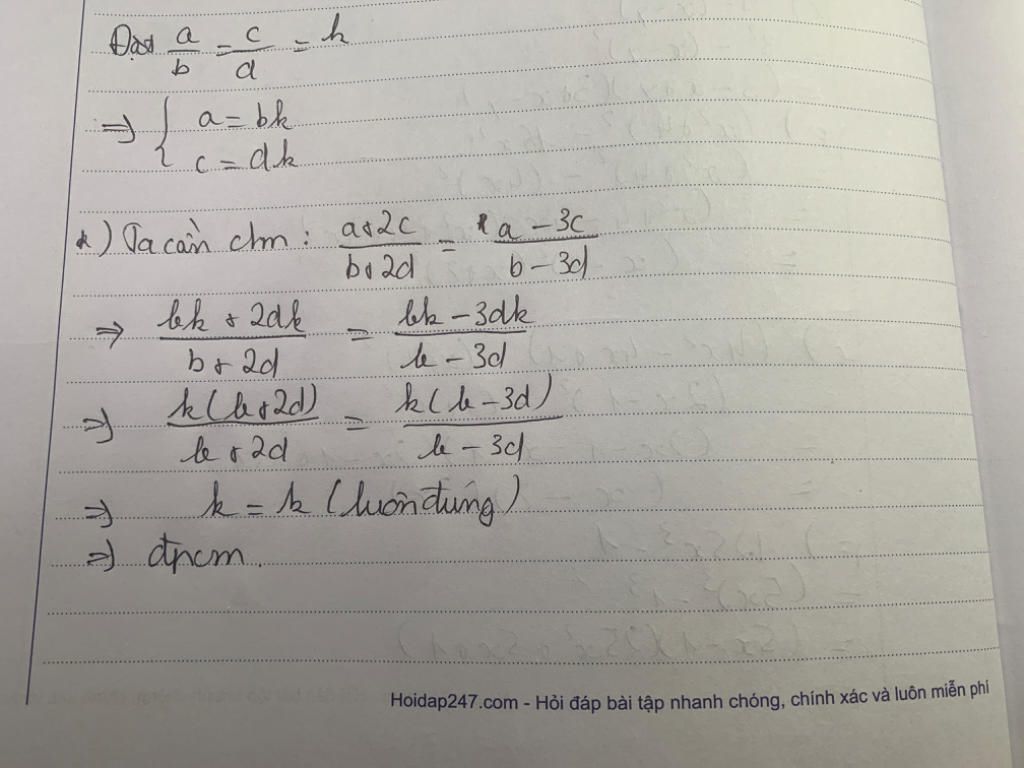 Đặt a/b = c/d = k
=> { a = bk
c = dk
*) Ta cần c/m: (a+2c)/(b+2d) = (a-3c)/(b-3d)
=> (bk+2dk)/(b+2d) = (bk-3dk)/(b-3d)
=> k(b+2d)/(b+2d) = k(b-3d)/(b-3d)
=> k = k (luôn đúng)
=> đpcm.
Hoidap247.com - Hỏi đáp bài tập nhanh chóng, chính xác và luôn miễn phí